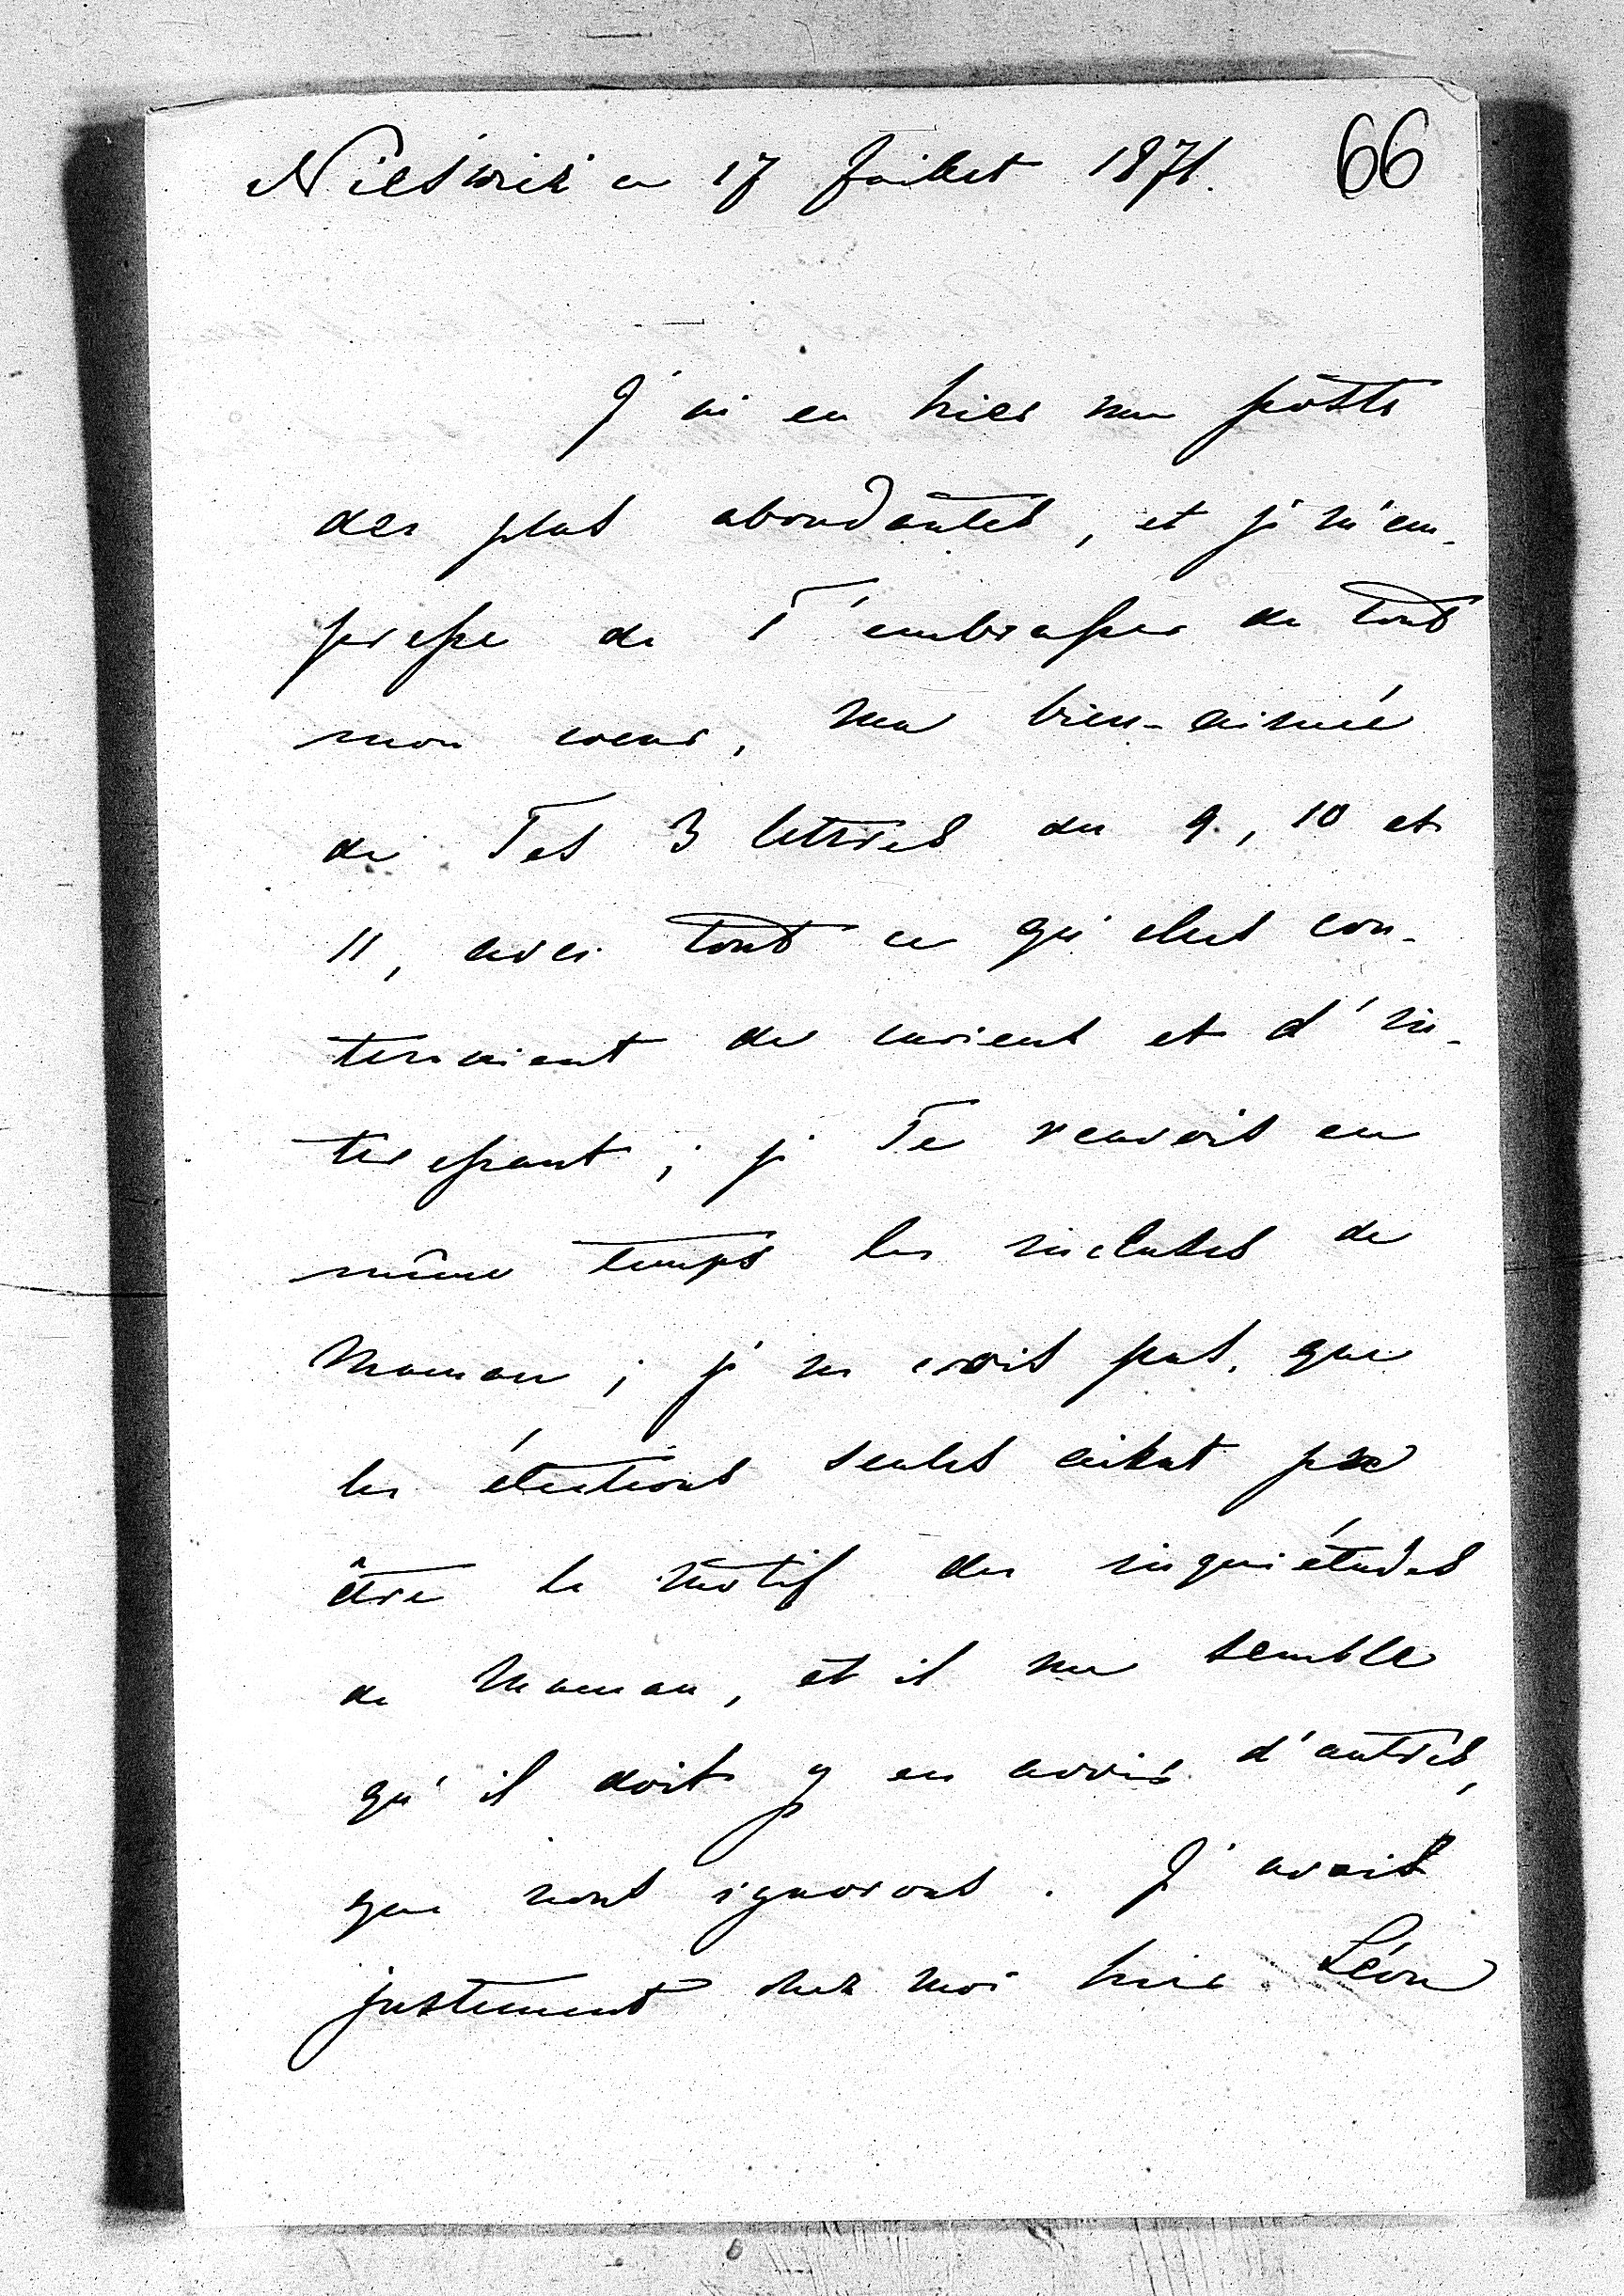 Nieświeź ce 17 Juillet 1871. 66
J'ai eu hier une poste
des plus abondantes, et je m'em-
presse de T'embrasser de tout
mon coeur, ma bien-aimée
de Tes 3 lettres du 9, 10 et
11, avec tout ce qu'elles con-
tenaient de curieux et d'in-
teressant; je Te renvois en
même temps les incluses de
Maman; je ne crois pas, que
les élections seules aient pu
être le motif des inquiétudes
de Maman, et il me semble
qu'il doit y en avoir d'autres,
que nous ignorons. J'avais
justement chez moi hier Léon